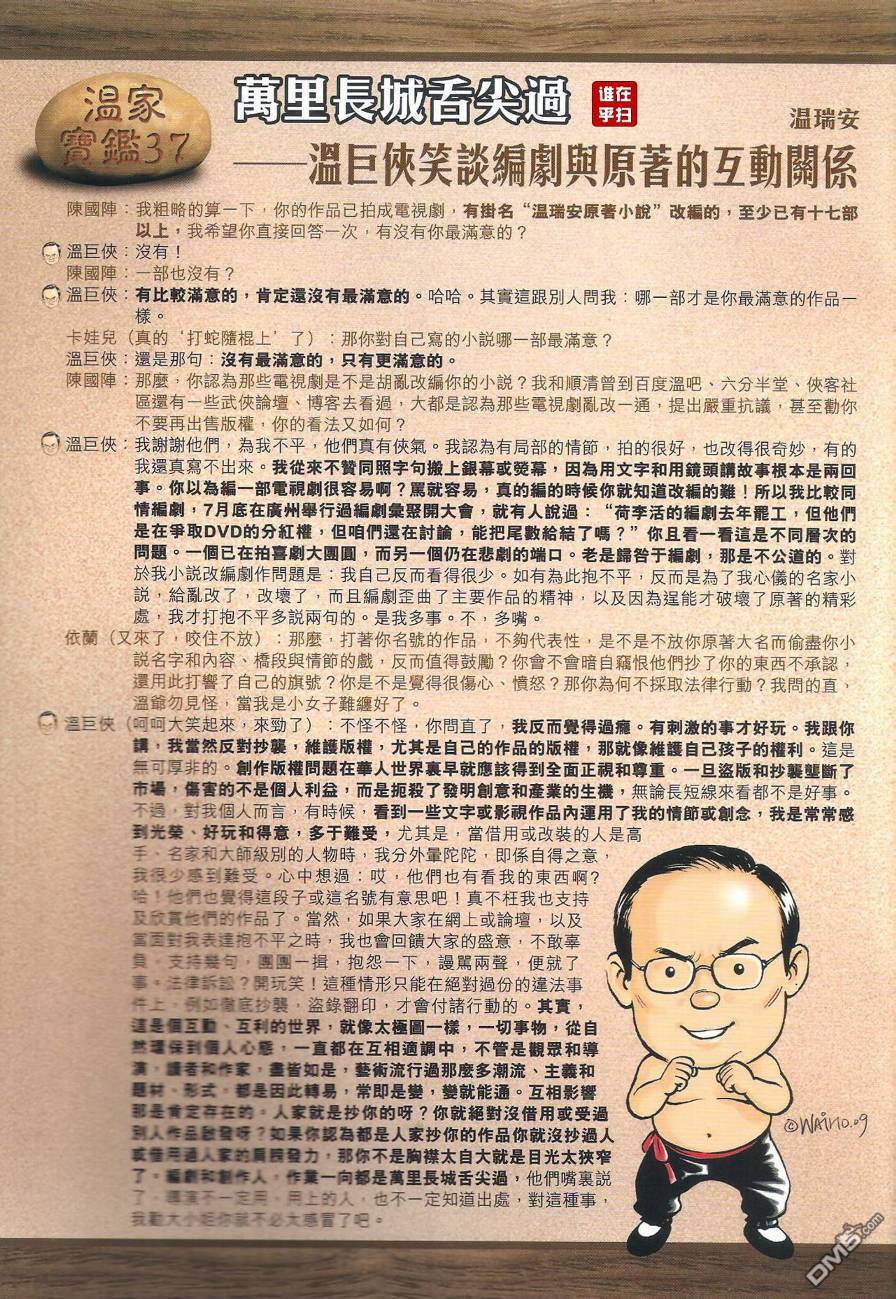 溫家
寶鑑37
萬里長城舌尖過
谁在
乎扫
溫瑞安
——溫巨俠笑談編劇與原著的互動關係
陳國陣：我粗略的算一下，你的作品已拍成電視劇，有掛名“溫瑞安原著小說”改編的，至少已有十七部
以上，我希望你直接回答一次，有沒有你最滿意的？
溫巨俠：沒有！
陳國陣：一部也沒有？
溫巨俠：有比較滿意的，肯定還沒有最滿意的。哈哈。其實這跟別人問我：哪一部才是你最滿意的作品一
樣。
卡娃兒（真的‘打蛇隨棍上’了）：那你對自己寫的小說哪一部最滿意？
溫巨俠：還是那句：沒有最滿意的，只有更滿意的。
陳國陣：那麼，你認為那些電視劇是不是胡亂改編你的小說？我和順清曾到百度溫吧、六分半堂、俠客社
區還有一些武俠論壇、博客去看過，大都是認為那些電視劇亂改一通，提出嚴重抗議，甚至勸你
不要再出售版權，你的看法又如何？
溫巨俠：我謝謝他們，為我不平，他們真有俠氣。我認為有局部的情節，拍的很好，也改得很奇妙，有的
我還真寫不出來。我從來不贊同照字句搬上銀幕或熒幕，因為用文字和用鏡頭講故事根本是兩回
事。你以為編一部電視劇很容易啊？罵就容易，真的編的時候你就知道改編的難！所以我比較同
情編劇，7月底在廣州舉行過編劇彙聚開大會，就有人說過：“荷李活的編劇去年罷工，但他們
是在爭取DVD的分紅權，但咱們還在討論，能把尾數給結了嗎？”你且看一看這是不同層次的
問題。一個已在拍喜劇大團圓，而另一個仍在悲劇的端口。老是歸咎于編劇，那是不公道的。對
於我小說改編劇作問題是：我自己反而看得很少。如有為此抱不平，反而是為了我心儀的名家小
說，給亂改了，改壞了，而且編劇歪曲了主要作品的精神，以及因為逞能才破壞了原著的精彩
處，我才打抱不平多說兩句的。是我多事。不，多嘴。
依蘭（又來了，咬住不放）：那麼，打著你名號的作品，不夠代表性，是不是不放你原著大名而偷盡你小
說名字和內容、橋段與情節的戲，反而值得鼓勵？你會不會暗自竊恨他們抄了你的東西不承認，
還用此打響了自己的旗號？你是不是覺得很傷心、憤怒？那你為何不採取法律行動？我問的直，
溫爺勿見怪，當我是小女子難纏好了。
溫巨俠（呵呵大笑起來，來勁了）：不怪不怪，你問直了，我反而覺得過癮。有刺激的事才好玩。我跟你
講，我當然反對抄襲，維護版權，尤其是自己的作品的版權，那就像維護自己孩子的權利。這是
無可厚非的。創作版權問題在華人世界裏早就應該得到全面正視和尊重。一旦盜版和抄襲壟斷了
市場，傷害的不是個人利益，而是扼殺了發明創意和產業的生機，無論長短線來看都不是好事。
不過，對我個人而言，有時候，看到一些文字或影視作品內運用了我的情節或創念，我是常常感
到光榮、好玩和得意，多于難受，尤其是，當借用或改裝的人是高
手、名家和大師級別的人物時，我分外暈陀陀，即係自得之意，
我很少感到難受。心中想過：哎，他們也有看我的東西啊？
哈！他們也覺得這段子或這名號有意思吧！真不枉我也支持
及欣賞他們的作品了。當然，如果大家在網上或論壇，以及
當面對我表達抱不平之時，我也會回饋大家的盛意，不敢辜
負，支持幾句，團團一揖，抱怨一下，謾罵兩聲，便就了
事。法律訴訟？開玩笑！這種情形只能在絕對過份的違法事
件上，例如徹底抄襲，盜錄翻印，才會付諸行動的。其實，
這是個互動、互利的世界，就像太極圖一樣，一切事物，從自
然環保到個人心態，一直都在互相適調中，不管是觀眾和導
演，讀者和作家，盡皆如是，藝術流行過那麼多潮流、主義和
題材、形式，都是因此轉易，常即是變，變就能通。互相影響
那是肯定存在的。人家就是抄你的呀？你就絕對沒借用或受過
別人作品啟發呀？如果你認為都是人家抄你的作品你就沒抄過人
或借用過人家的肩膀發力，那你不是胸襟太自大就是目光太狹窄
了。編劇和創作人，作業一向都是萬里長城舌尖過，他們嘴裏說
了，導演不一定用，用上的人，也不一定知道出處，對這種事，
我勸大小姐你就不必太感冒了吧。
©WAIHO.09
DM5.com